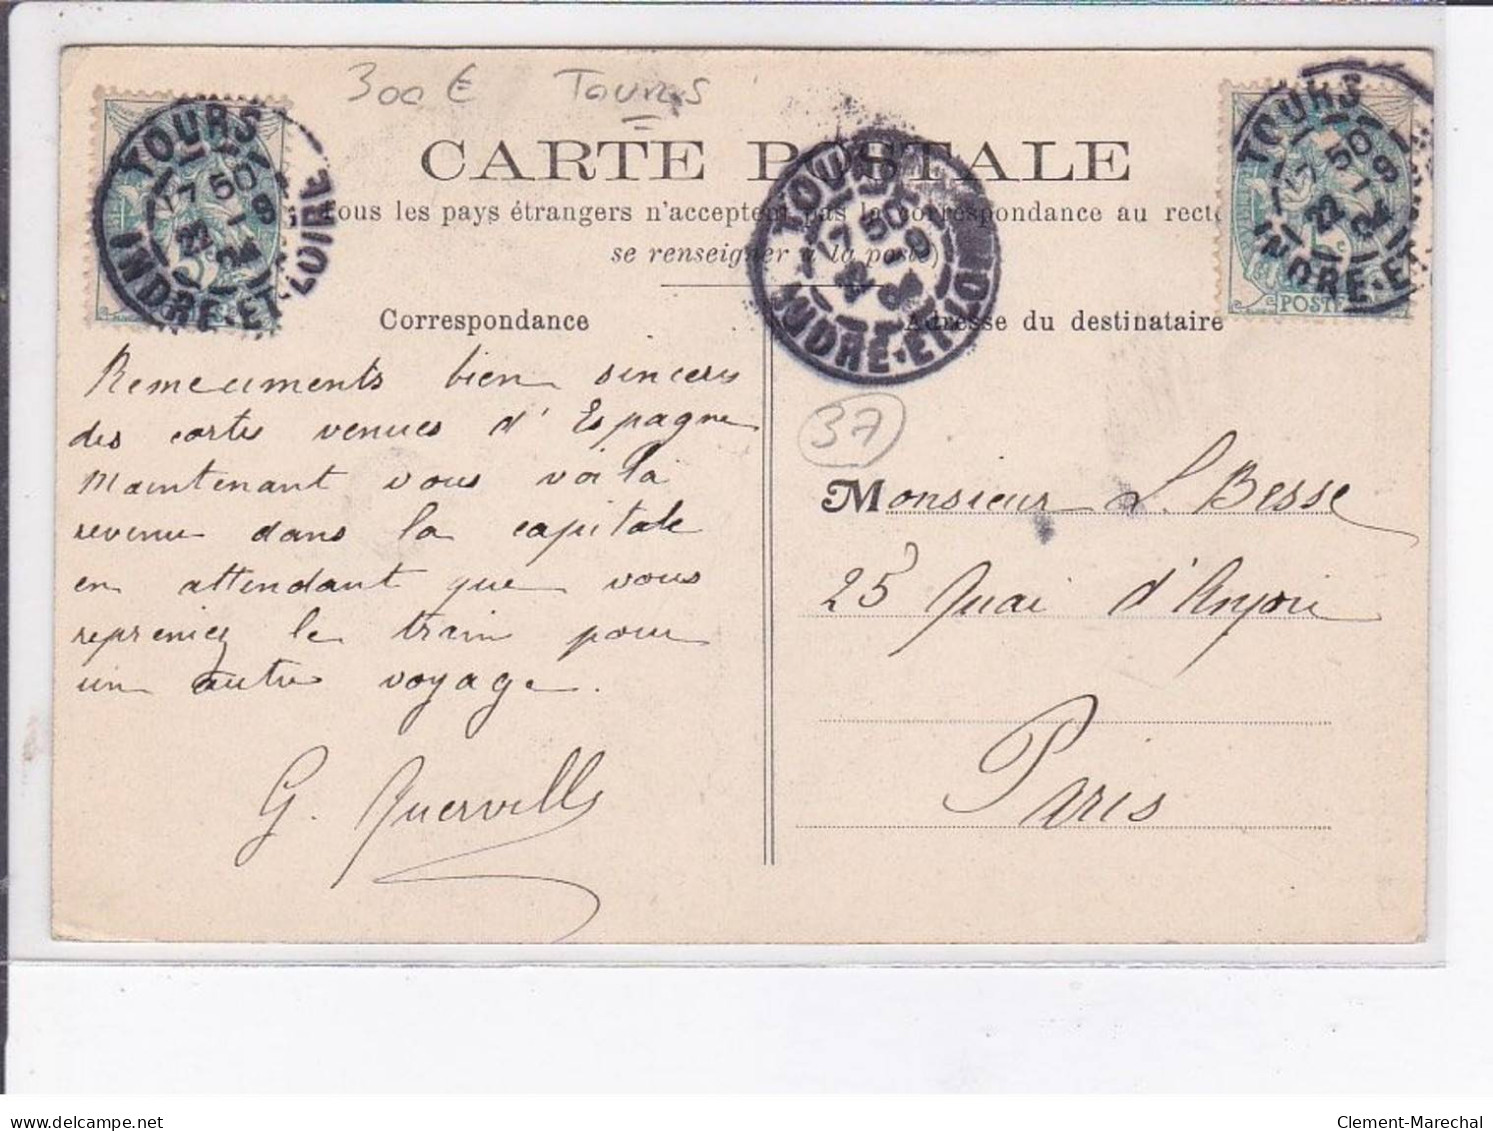 300€ Tours
CARTE POSTALE
Tous les pays étrangers n'acceptent pas la correspondance au recto
se renseigner à la poste)
TOURS
17 50
22 - 9
04
INDRE-ET-LOIRE
TOURS
17 50
22 - 9
04
INDRE-ET-LOIRE
TOURS
17 50
22 - 9
04
INDRE-ET-
5c
POSTE
Correspondance
Remerciments bien sincères
des cartes venues d'Espagne
Maintenant vous voilà
revenu dans la capitale
en attendant que vous
repreniez le train pour
un autre voyage.
G. Quervelle
Adresse du destinataire
37
Monsieur L. Besse
25 Quai d'Anjou
Paris
delcampe.net
Clement-Marechal